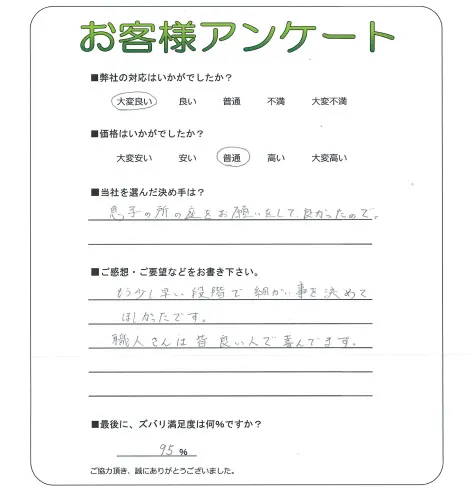 お客様アンケート
■弊社の対応はいかがでしたか？
大変良い 良い 普通 不満 大変不満
■価格はいかがでしたか？
大変安い 安い 普通 高い 大変高い
■当社を選んだ決め手は？
息子の所の をお願いをして良かったので。
■ご感想・ご要望などをお書き下さい。
もう少し早い段階で細かい事を決めて
ほしかったです。
職人さんは皆良い人で喜んでます。
■最後に、ズバリ満足度は何%ですか？
95 %
ご協力頂き、誠にありがとうございました。